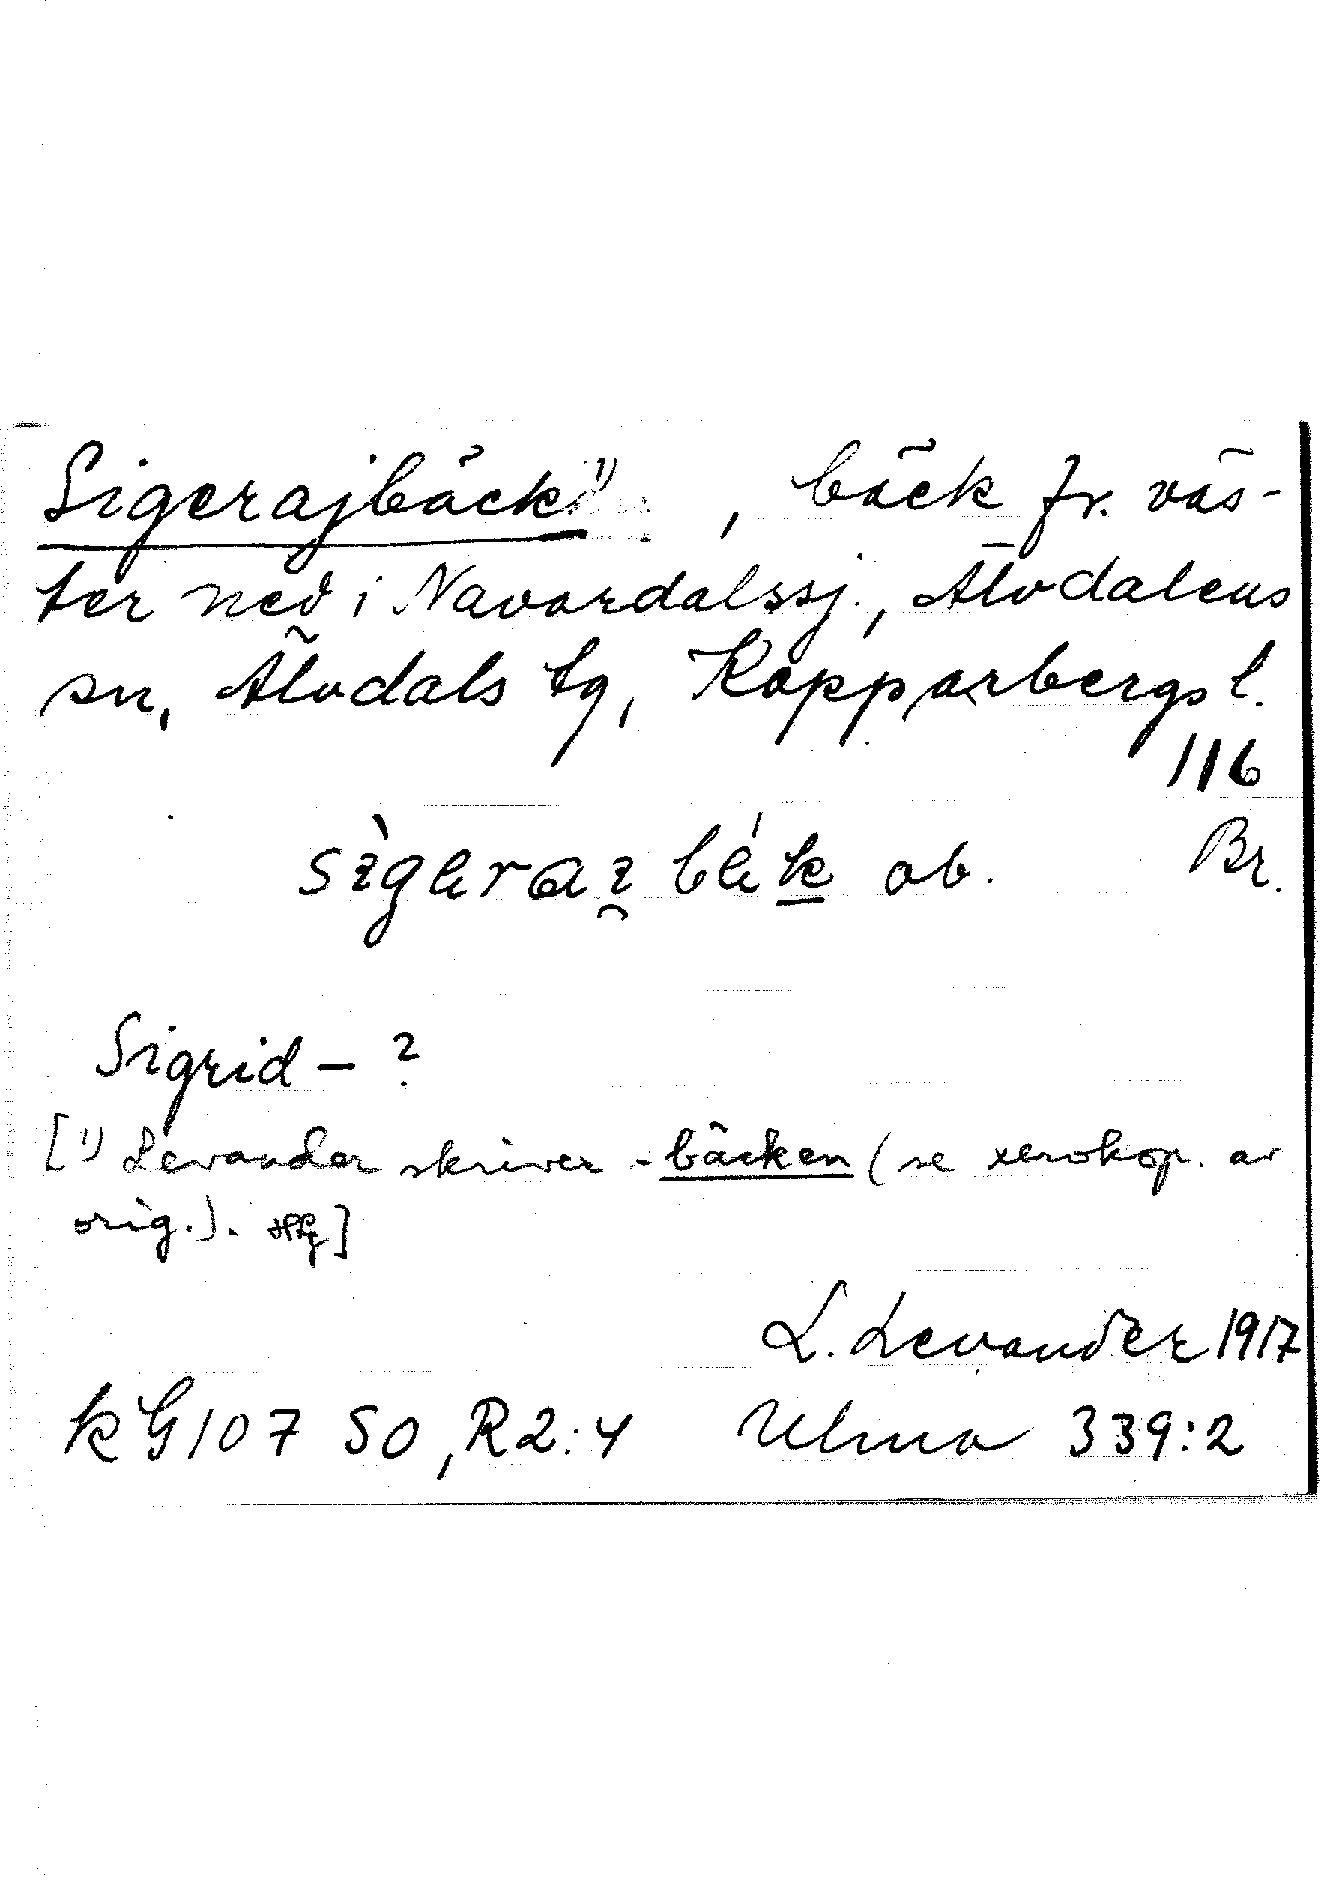 Sigerajbäck ¹⁾, bäck fr. väs-
ter ned i Navardalssj., Älvdalens
sn, Älvdals tg, Kopparbergs l.
116
sìgerai̯ bék ob. Br.
Sigrid – ?
[¹⁾ Levander skriver -bäcken (se xerokop. av
orig.). ]
L. Levander 1917
kG107 SO, R2:4 Ulma 339:2